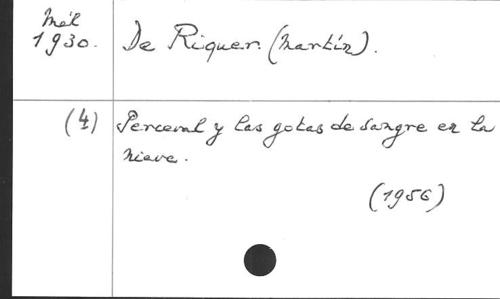 Mél
1930. De Riquer. (Martín).
(4) Perceval y las gotas de sangre en la
nieve.
(1956)